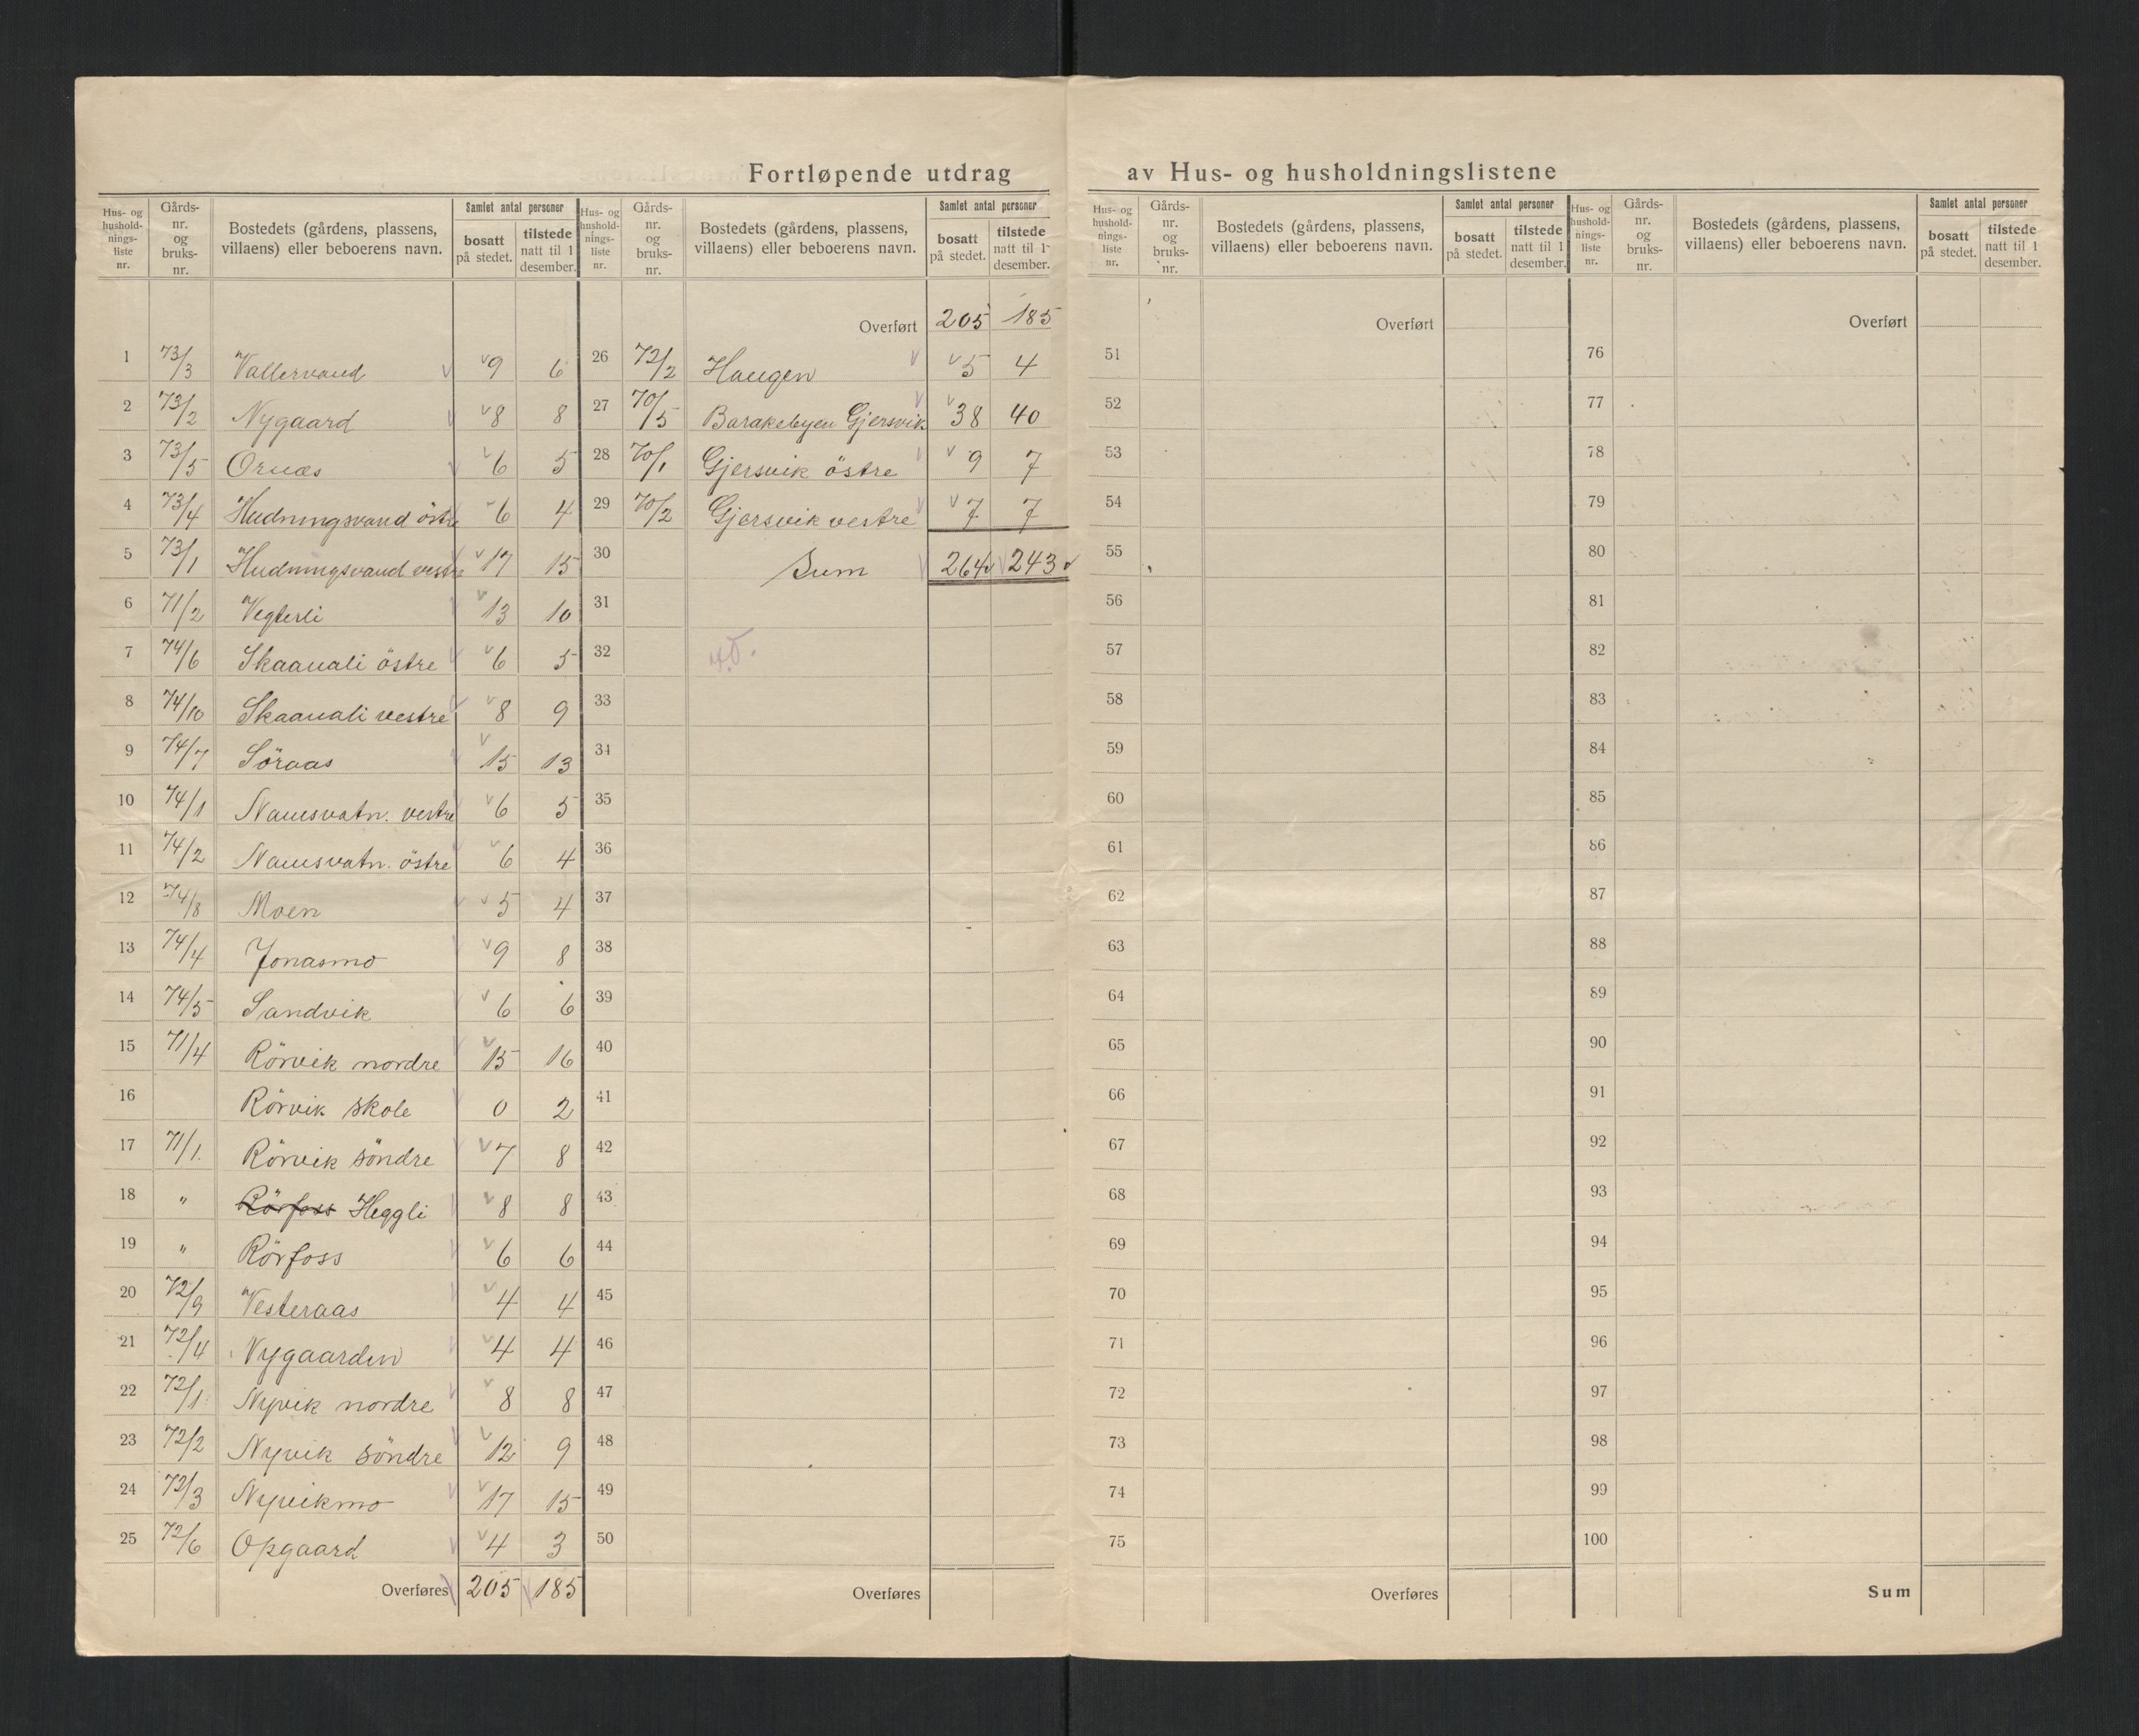 Fortløpende utdrag av Hus- og husholdningslistene
Hus- og hushold-nings-liste nr. Gårds-nr. og bruks-nr. Bostedets (gårdens, plassens, villaens) eller beboerens navn. Samlet antal personer bosatt på stedet. tilstede natt til 1 desember.
1 73/3 Vallervand 9 6
2 73/2 Nygaard 8 8
3 73/5 Ornæs 6 5
4 73/4 Hudningsvand östre 6 4
5 73/1 Hudningsvand vestre 17 15
6 71/2 Vegterli 13 10
7 74/6 Skaanali östre 6 5
8 74/10 Skaanali vestre 8 9
9 74/7 Söraas 15 13
10 74/1 Namsvatn. vestre 6 5
11 74/2 Namsvatn. östre 6 4
12 74/8 Moen 5 4
13 74/4 Jonasmo 9 8
14 74/5 Sandvik 6 6
15 71/4 Rörvik nordre 15 16
16 Rörvik skole 0 2
17 71/1. Rörvik söndre 7 8
18 " Rörfoss Heggli 8 8
19 " Rörfoss 6 6
20 72/9 Vesteraas 4 4
21 72/4 Nygaarden 4 4
22 72/1 Nyvik nordre 8 8
23 72/2 Nyvik söndre 12 9
24 72/3 Nyvikmo 17 15
25 72/6 Opgaard 4 3
Overføres 205 185
Hus- og hushold-nings-liste nr. Gårds-nr. og bruks-nr. Bostedets (gårdens, plassens, villaens) eller beboerens navn. Samlet antal personer bosatt på stedet. tilstede natt til 1 desember.
Overført 205 185
26 72/2 Haugen 5 4
27 70/5 Barakebyen Gjersvik 38 40
28 70/1 Gjersvik östre 9 7
29 70/2 Gjersvik vestre 7 7
30 Sum 264 243
31
32
33
34
35
36
37
38
39
40
41
42
43
44
45
46
47
48
49
50
Overføres
Hus- og hushold-nings-liste nr. Gårds-nr. og bruks-nr. Bostedets (gårdens, plassens, villaens) eller beboerens navn. Samlet antal personer bosatt på stedet. tilstede natt til 1 desember.
Overført
51
52
53
54
55
56
57
58
59
60
61
62
63
64
65
66
67
68
69
70
71
72
73
74
75
Overføres
Hus- og hushold-nings-liste nr. Gårds-nr. og bruks-nr. Bostedets (gårdens, plassens, villaens) eller beboerens navn. Samlet antal personer bosatt på stedet. tilstede natt til 1 desember.
Overført
76
77
78
79
80
81
82
83
84
85
86
87
88
89
90
91
92
93
94
95
96
97
98
99
100
Sum